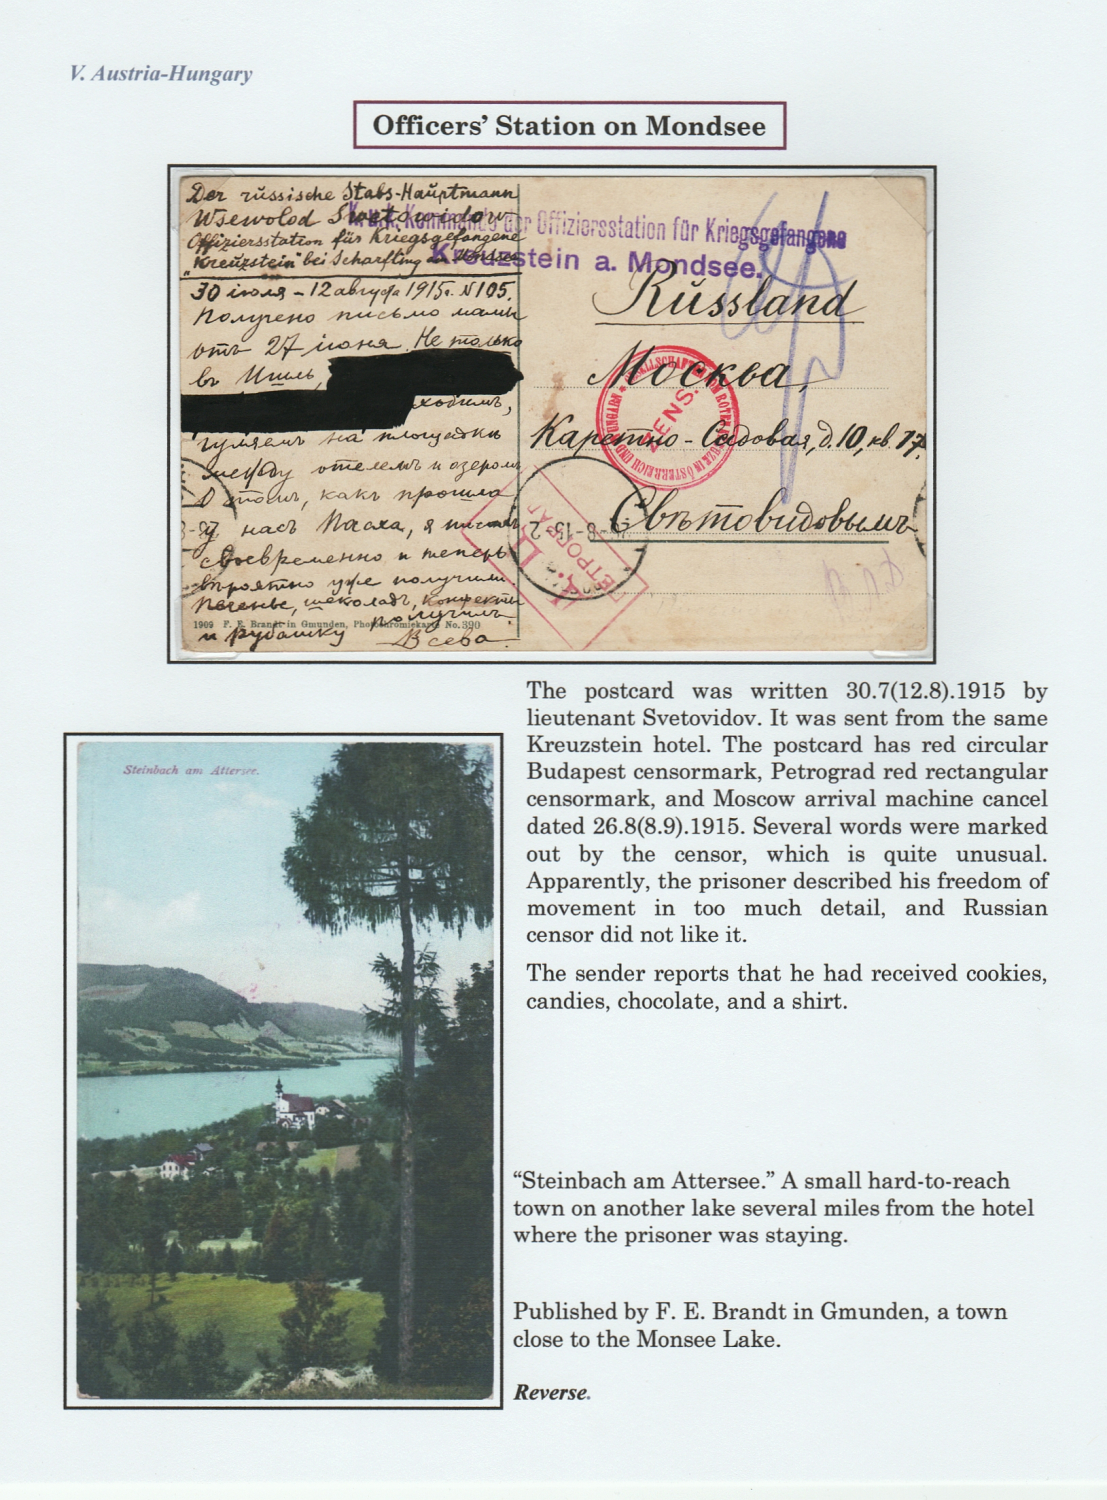 V. Austria-Hungary
Officers’ Station on Mondsee
Der russische Stabs-Hauptmann
Wsewolod Swetowidow
Offiziersstation für Kriegsgefangene
"Kreuzstein" bei Scharfling am Mondsee
30 июля - 12 августа 1915 г. N 105.
Получено письмо мамы
отъ 27 июня. Не только
въ Ишль,
ходимъ,
гуляемъ на площадкѣ
между отелемъ и озеромъ
О томъ, какъ прошла
у насъ Пасха, я писалъ
своевременно и теперь
вѣроятно уже получили.
Печенье, шоколадъ, конфекты
и рубашку получилъ.
Всева
1909 F. E. Brandt in Gmunden, Photochromiekarte No. 390
K.u.k. Kommando der Offiziersstation für Kriegsgefangene
Kreuzstein a. Mondsee.
Russland
Москва,
Каретно-Садовая, д. 10, кв. 17
Свѣтовидовымъ
ZENS.
The postcard was written 30.7(12.8).1915 by
lieutenant Svetovidov. It was sent from the same
Kreuzstein hotel. The postcard has red circular
Budapest censormark, Petrograd red rectangular
censormark, and Moscow arrival machine cancel
dated 26.8(8.9).1915. Several words were marked
out by the censor, which is quite unusual.
Apparently, the prisoner described his freedom of
movement in too much detail, and Russian
censor did not like it.
The sender reports that he had received cookies,
candies, chocolate, and a shirt.
Steinbach am Attersee.
“Steinbach am Attersee.” A small hard-to-reach
town on another lake several miles from the hotel
where the prisoner was staying.
Published by F. E. Brandt in Gmunden, a town
close to the Monsee Lake.
Reverse.